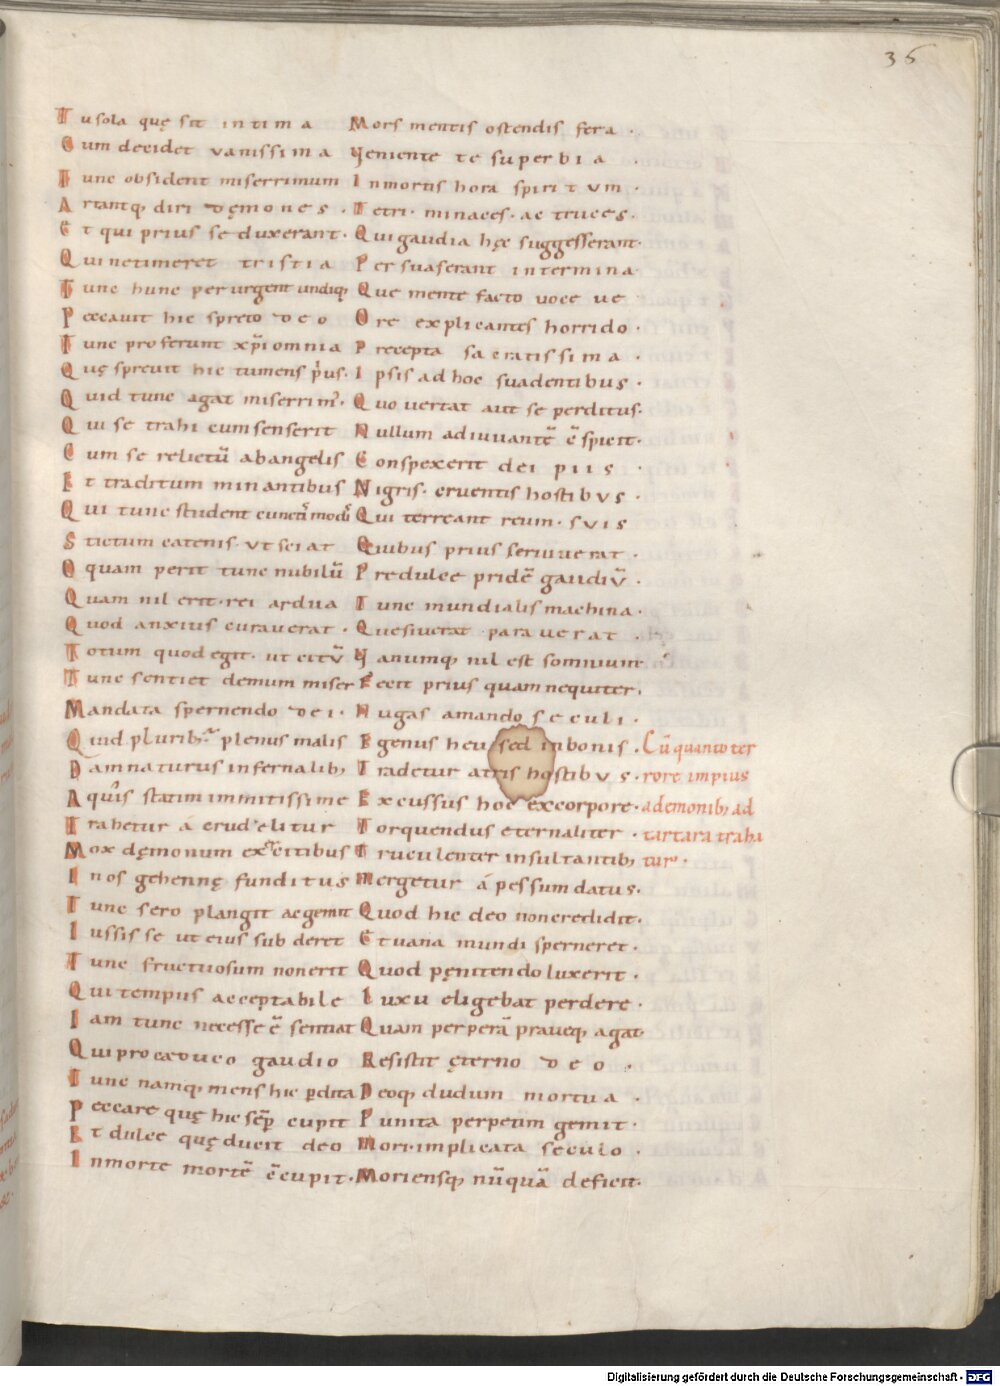 36
Tu sola quę sit intima Mors mentis ostendis fera ·
Cum decidet vanissima Veniente te superbia ·
Tunc obsident miserrimum In mortis hora spiritvm ·
Artantq; diri dęmones · Tetri · minaces · ac truces ·
Et qui prius seduxerant · Qui gaudia hęc suggesserant ·
Qui ne timeret tristia Persuaserant intermina
Tunc hunc perurgent undiq; Que mente facto uoce ue
Peccauit hic spreto deo Ore explicantes horrido ·
Tunc proferunt xp̄i omnia Precepta sacratissima ·
Quę spreuit hic tumens p̓us · Ipsis ad hoc suadentibus ·
Quid tunc agat miserrim᾽ · Quo uertat aut se perditus ·
Qui se trahi cum senserit Nullum adiuuantē c̄spicit ·
Cum se relictū ab angelis Conspexerit dei piis ·
Et traditum minantibus Nigris · cruentis hostibvs ·
Qui tunc student cunctis modis Qui terreant reum · svis
Strictum catenis · vt sciat Quibus prius seruiuerat ·
O quam perit tunc nubilū Predulce pridē gaudiv̄ ·
Quam nil erit · rei ardua Tunc mundialis machina ·
Quod anxius curauerat · Quesiuerat · parauerat ·
Totum quod egit · ut citv̄ Vanumq; nil est somnium ·
Tunc sentiet demum miser Fecit prius quam nequiter ;
Mandata spernendo dei · Nugas amando seculi ·
Quid plurib; plenus malis Egenus heu sed in bonis · Cū quanto ter
Damnaturus infernalib; Tradetur atris hostibvs · rore impius
A quis statim inmitissime Excussus hoc ex corpore · a demonib; ad
Trahetur á crudelitur Torquendus eternaliter · tartara trahi
Mox dęmonum exercitibus Truculenter insultantib; tur ·
In os gehennę funditus Mergetur á pessumdatus ·
Tunc sero plangit ac gemit Quod hic deo non credidit ·
Iussis se ut eius subderet Et uana mundi sperneret ·
Tunc fructuosum non erit Quod pęnitendo luxerit ·
Qui tempus acceptabile Luxu eligebat perdere ·
Iam tunc necesse ē sentiat Quam perperā praueq; agat
Qui pro caduco gaudio Resistit ęterno deo ·
Tunc namq; mens hic pdita Deoq; dudum mortua ·
Peccare quę hic semp̄ cupit Punita perpetim gemit ·
Et dulce quę ducit deo Mori · implicata seculo ·
In morte mortē c̄cupit · Moriensq; nūquā deficit ·
Digitalisierung gefördert durch die Deutsche Forschungsgemeinschaft - DFG